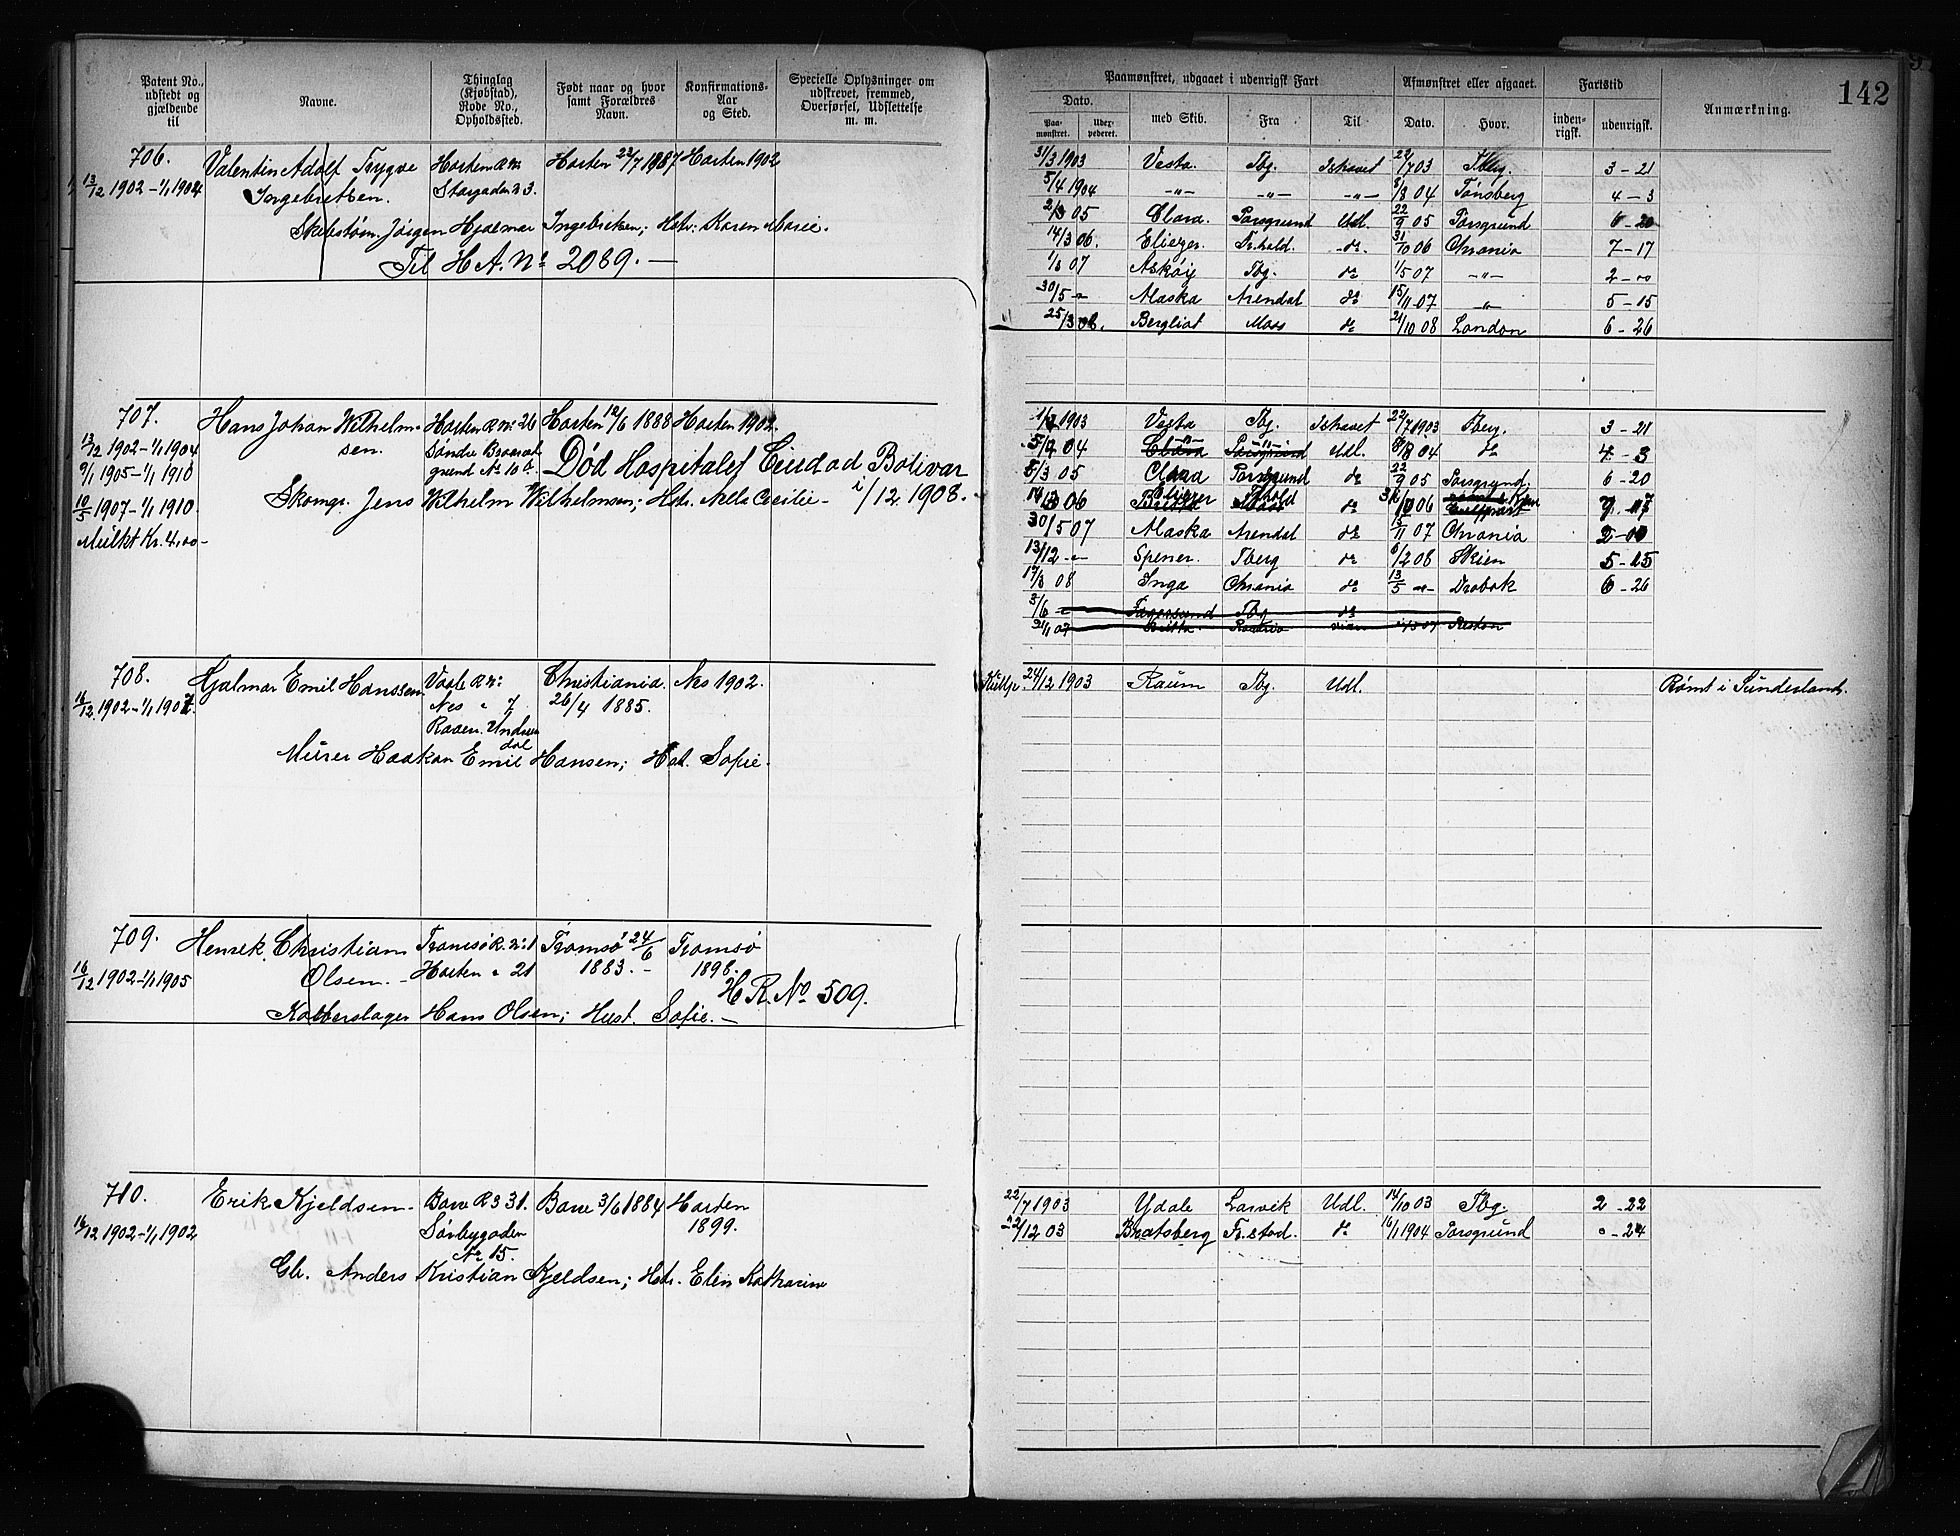 142
Patent No., udstedt og gjældende til
Navne.
Thinglag (Kjøbstad), Rode No., Opholdssted.
Født naar og hvor samt Forældres Navn.
Konfirmations-Aar og Sted.
Specielle Oplysninger om udskrevet, fremmed, Overførsel, Udslettelse m. m.
Paamønstret, udgaaet i udenrigsk Fart
Afmønstret eller afgaaet.
Fartstid
Anmærkning.
Dato.
Paa-mønstret.
Uder-pederet.
med Skib.
Fra
Til
Dato.
Hvor.
inden-rigsk.
udenrigsk.
706.
13/12 1902 - 1/1 1904
Valentin Adolf Trygve
Ingebretsen.
Horten R No
Storgaden 23.
Horten 22/7 1887
Horten 1902
Jörgen Hjalmar Ingebretsen; Hstr: Karen Marie.
Til H A. No 2089. —
31/3 1903 Vesta. Tbg. Ishavet 22/7 03 Tberg. 3 - 21
5/4 1904 -"- -"- -"- 8/8 04 Tönsberg 4 - 3
2/3 05 Clara. Porsgrund Udl. 22/9 05 Porsgrund 6 - 20
14/3 06. Eliezer. Fr.hald. do 31/10 06 Chrania 7 - 17
1/3 07 Askøy Tbg. do 1/5 07 -"- 2 - 00
30/5 -"- Alaska Arendal do 15/11 07 " 5 - 15
25/3 08. Bergliot Moss do 21/10 08 London 6 - 26
707.
13/12 1902 - 1/1 1904
9/1 1905 - 1/1 1910
10/5 1907 - 1/1 1910.
Mulkt Kr. 4,00 -
Hans Johan Wilhelm-
sen.
Horten R No 26
Søndre Braarud
grund No 10 d.
Horten 12/6 1888
Horten 1902.
Død Hospitalet Ciudad Bolivar
i/12 1908.
Skomgr. Jens Wilhelm Wilhelmsen; Hstr. Nella Cecilie -
1/4 1903 Vesta Tbg. Ishavet 22/7 1903 Tberg. 3 - 21
5/4 04 Clara Porsgrund Udl. 8/8 04 do 4 - 3
5/3 05 Clara Porsgrund do 22/9 05 Porsgrund. 6 - 20
14/3 06 Eliezer Fhald do 06 7 - 17
30/5 07 Alaska Arendal do 15/11 07 Chrania 2 - 00
13/12 -"- Spener. Tberg do 6/2 08 Skien 5 - 15
17/3 08 Inga Chrania do 13/5 -"- Drøbak 6 - 26
3/6 - Fagersund Tbg do
21/1 07 Britta
708.
16/12 1902 - 1/1 1907.
Hjalmar Emil Hanssen
Vaale R No
Nes " 7
Raaen. Undrum
dal
Christiania.
26/4 1885.
Nes 1902.
Murer Haakon Emil Hansen; Hst. Sofie.
24/12 1903 Raum Tbg. Udl. Rømt i Sunderland.
709.
16/12 1902 - 1/1 1905
Henrik Christian
Olsen. -
Tromsö R. No 1
Horten " 21
Tromsö 24/6
1883. -
Tromsö
1898.
H R. No 509.
Kobberslager Hans Olsen; Hust. Sofie. -
710.
16/12 1902 - 1/1 1902
Erik Kjeldsen.
Borre R 3 31.
Sørbygaden
No 15.
Borre 3/6 1884
Horten
1899.
Gb. Anders Kristian Kjeldsen; Hstr. Elin Katharine
22/7 1903 Ydale Larvik Udl. 14/10 03 Tbg. 2 - 22
22/12 03 Bratsberg Fr.stad. do 16/1 1904 Porsgrund 0 - 24